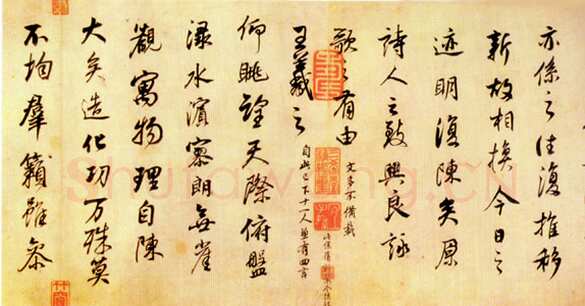 亦係之往復推移
新故相換今日之
迹明復陳矣原
詩人之致興良詠
歌之有由
文多不備載
王羲之
自此已下十一人並有四言
仰眺望天際俯盤
渌水濱寥朗無崖
觀寓物理自陳
大矣造化功万殊莫
不均羣籟雖参
Shufawang.CN